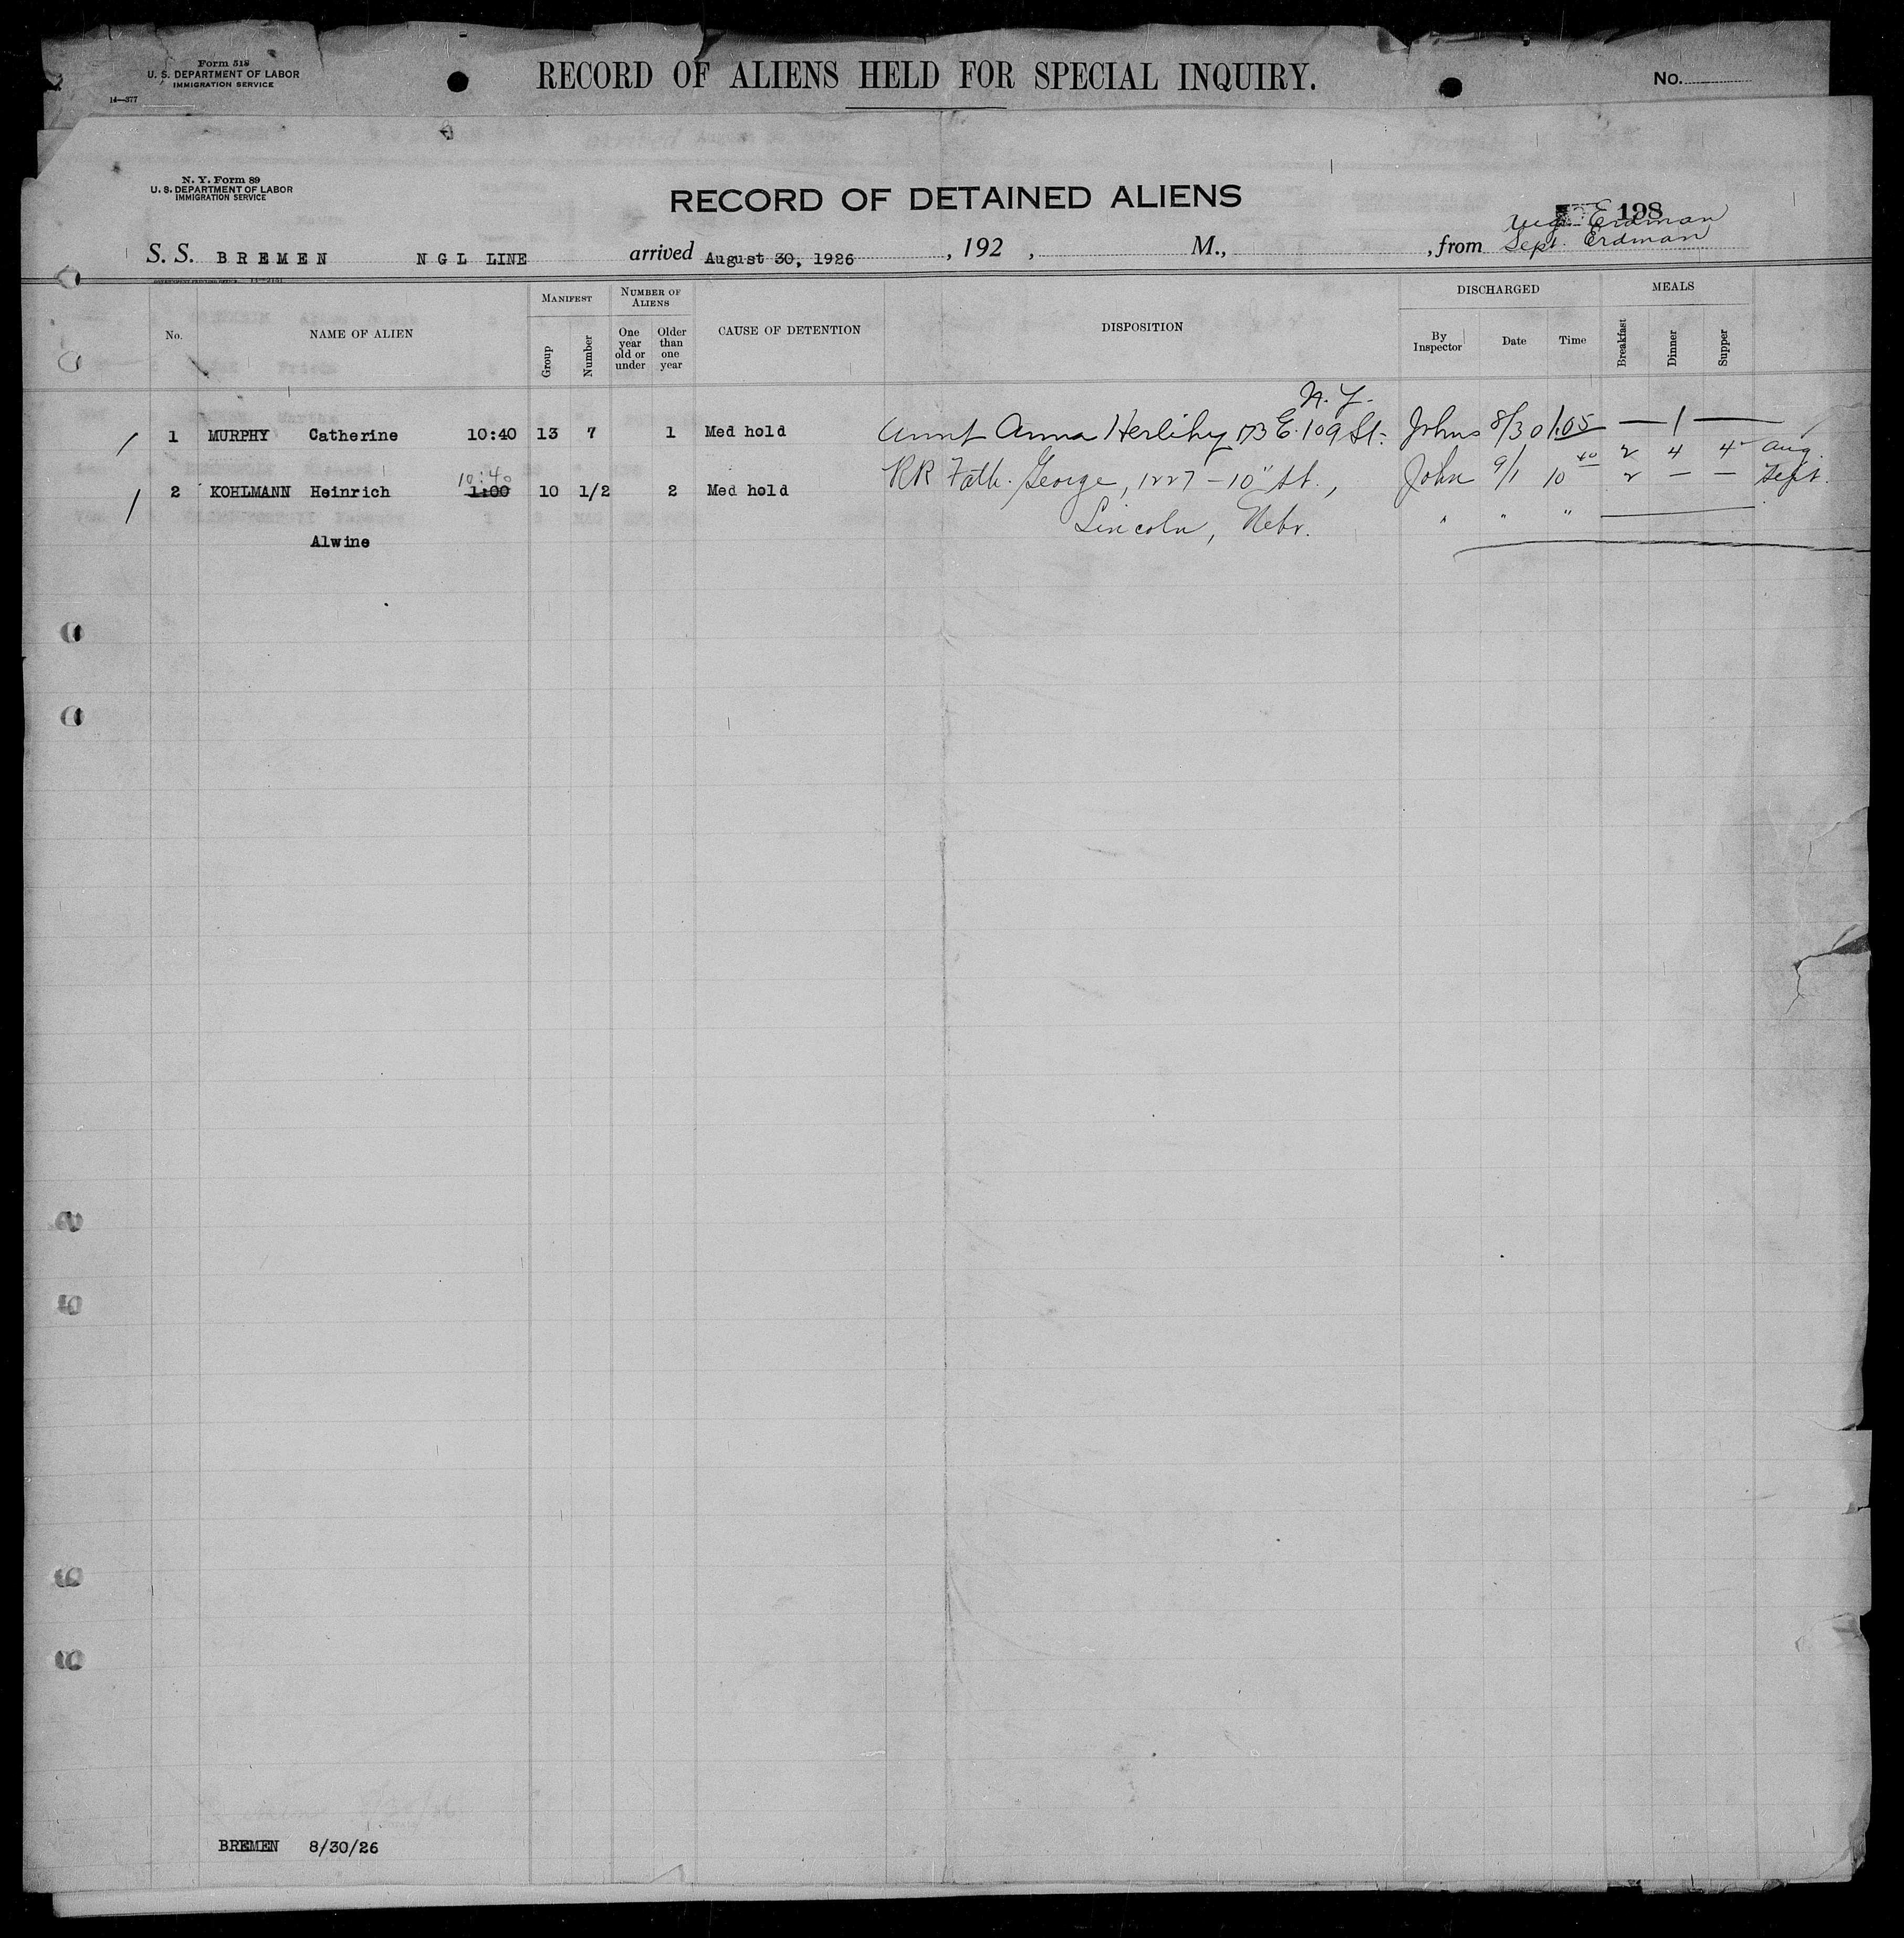 Form 518
U. S. DEPARTMENT OF LABOR
IMMIGRATION SERVICE
14—377
RECORD OF ALIENS HELD FOR SPECIAL INQUIRY.
No.
N. Y. Form 89
U. S. DEPARTMENT OF LABOR
IMMIGRATION SERVICE
RECORD OF DETAINED ALIENS
198
Aug. Erdman
S. S. BREMEN NGL LINE arrived August 30, 1926, 192 , M., , from Sept. Erdman
No.
NAME OF ALIEN
MANIFEST
Group
Number
NUMBER OF ALIENS
One year old or under
Older than one year
CAUSE OF DETENTION
DISPOSITION
DISCHARGED
By Inspector
Date
Time
MEALS
Breakfast
Dinner
Supper
N. Y.
1 MURPHY Catherine 10:40 13 7 1 Med hold Aunt Anna Herlihy 173 E. 109 St. Johns 8/30 1.05 — 1 —
2 4 4 Aug.
10:40
2 KOHLMANN Heinrich 1:00 10 1/2 2 Med hold RR Fath. George, 1227 - 10" St., John 9/1 10 40 2 — — Sept.
Lincoln, Nebr. " " "
Alwine
BREMEN 8/30/26